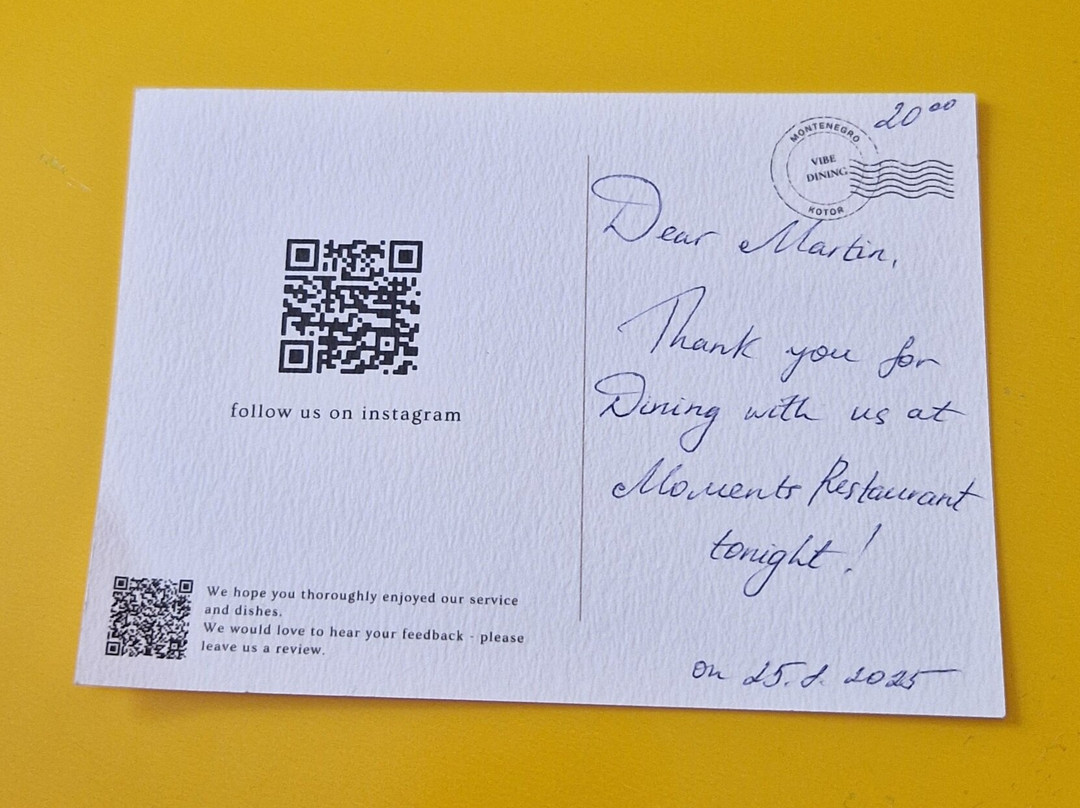 20⁰⁰
MONTENEGRO
VIBE
DINING
KOTOR
Dear Martin,
Thank you for
Dining with us at
Moments Restaurant
tonight!
on 25.8.2025
follow us on instagram
We hope you thoroughly enjoyed our service
and dishes.
We would love to hear your feedback - please
leave us a review.